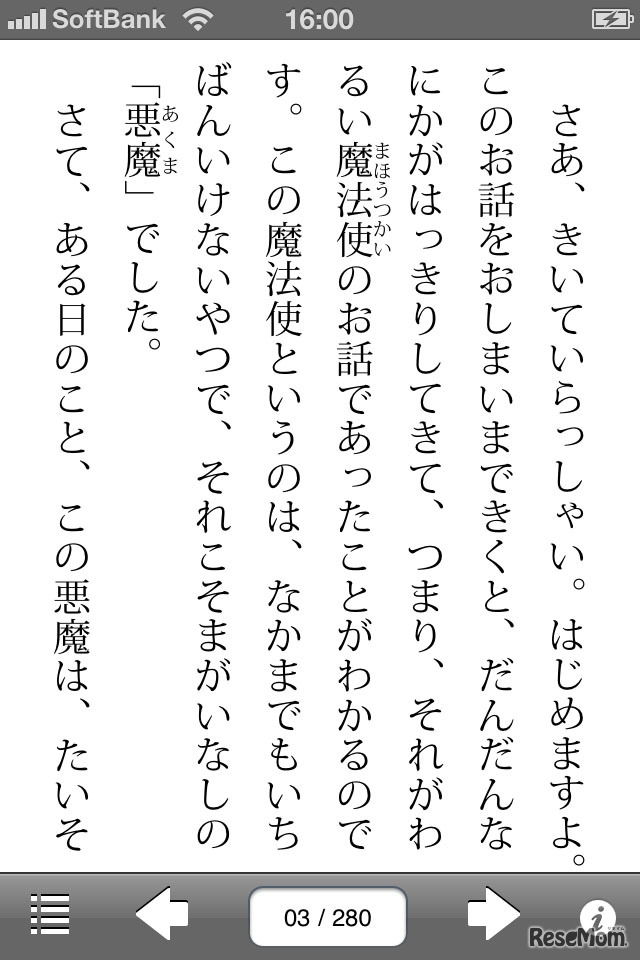 SoftBank 16:00
さあ、きいていらっしゃい。はじめますよ。
このお話をおしまいまできくと、だんだんな
にかがはっきりしてきて、つまり、それがわ
るい魔法使のお話であったことがわかるので
まほうつかい
す。この魔法使というのは、なかまでもいち
ばんいけないやつで、それこそまがいなしの
「悪魔」でした。
あくま
さて、ある日のこと、この悪魔は、たいそ
03 / 280
i
ReseMom
リセマム